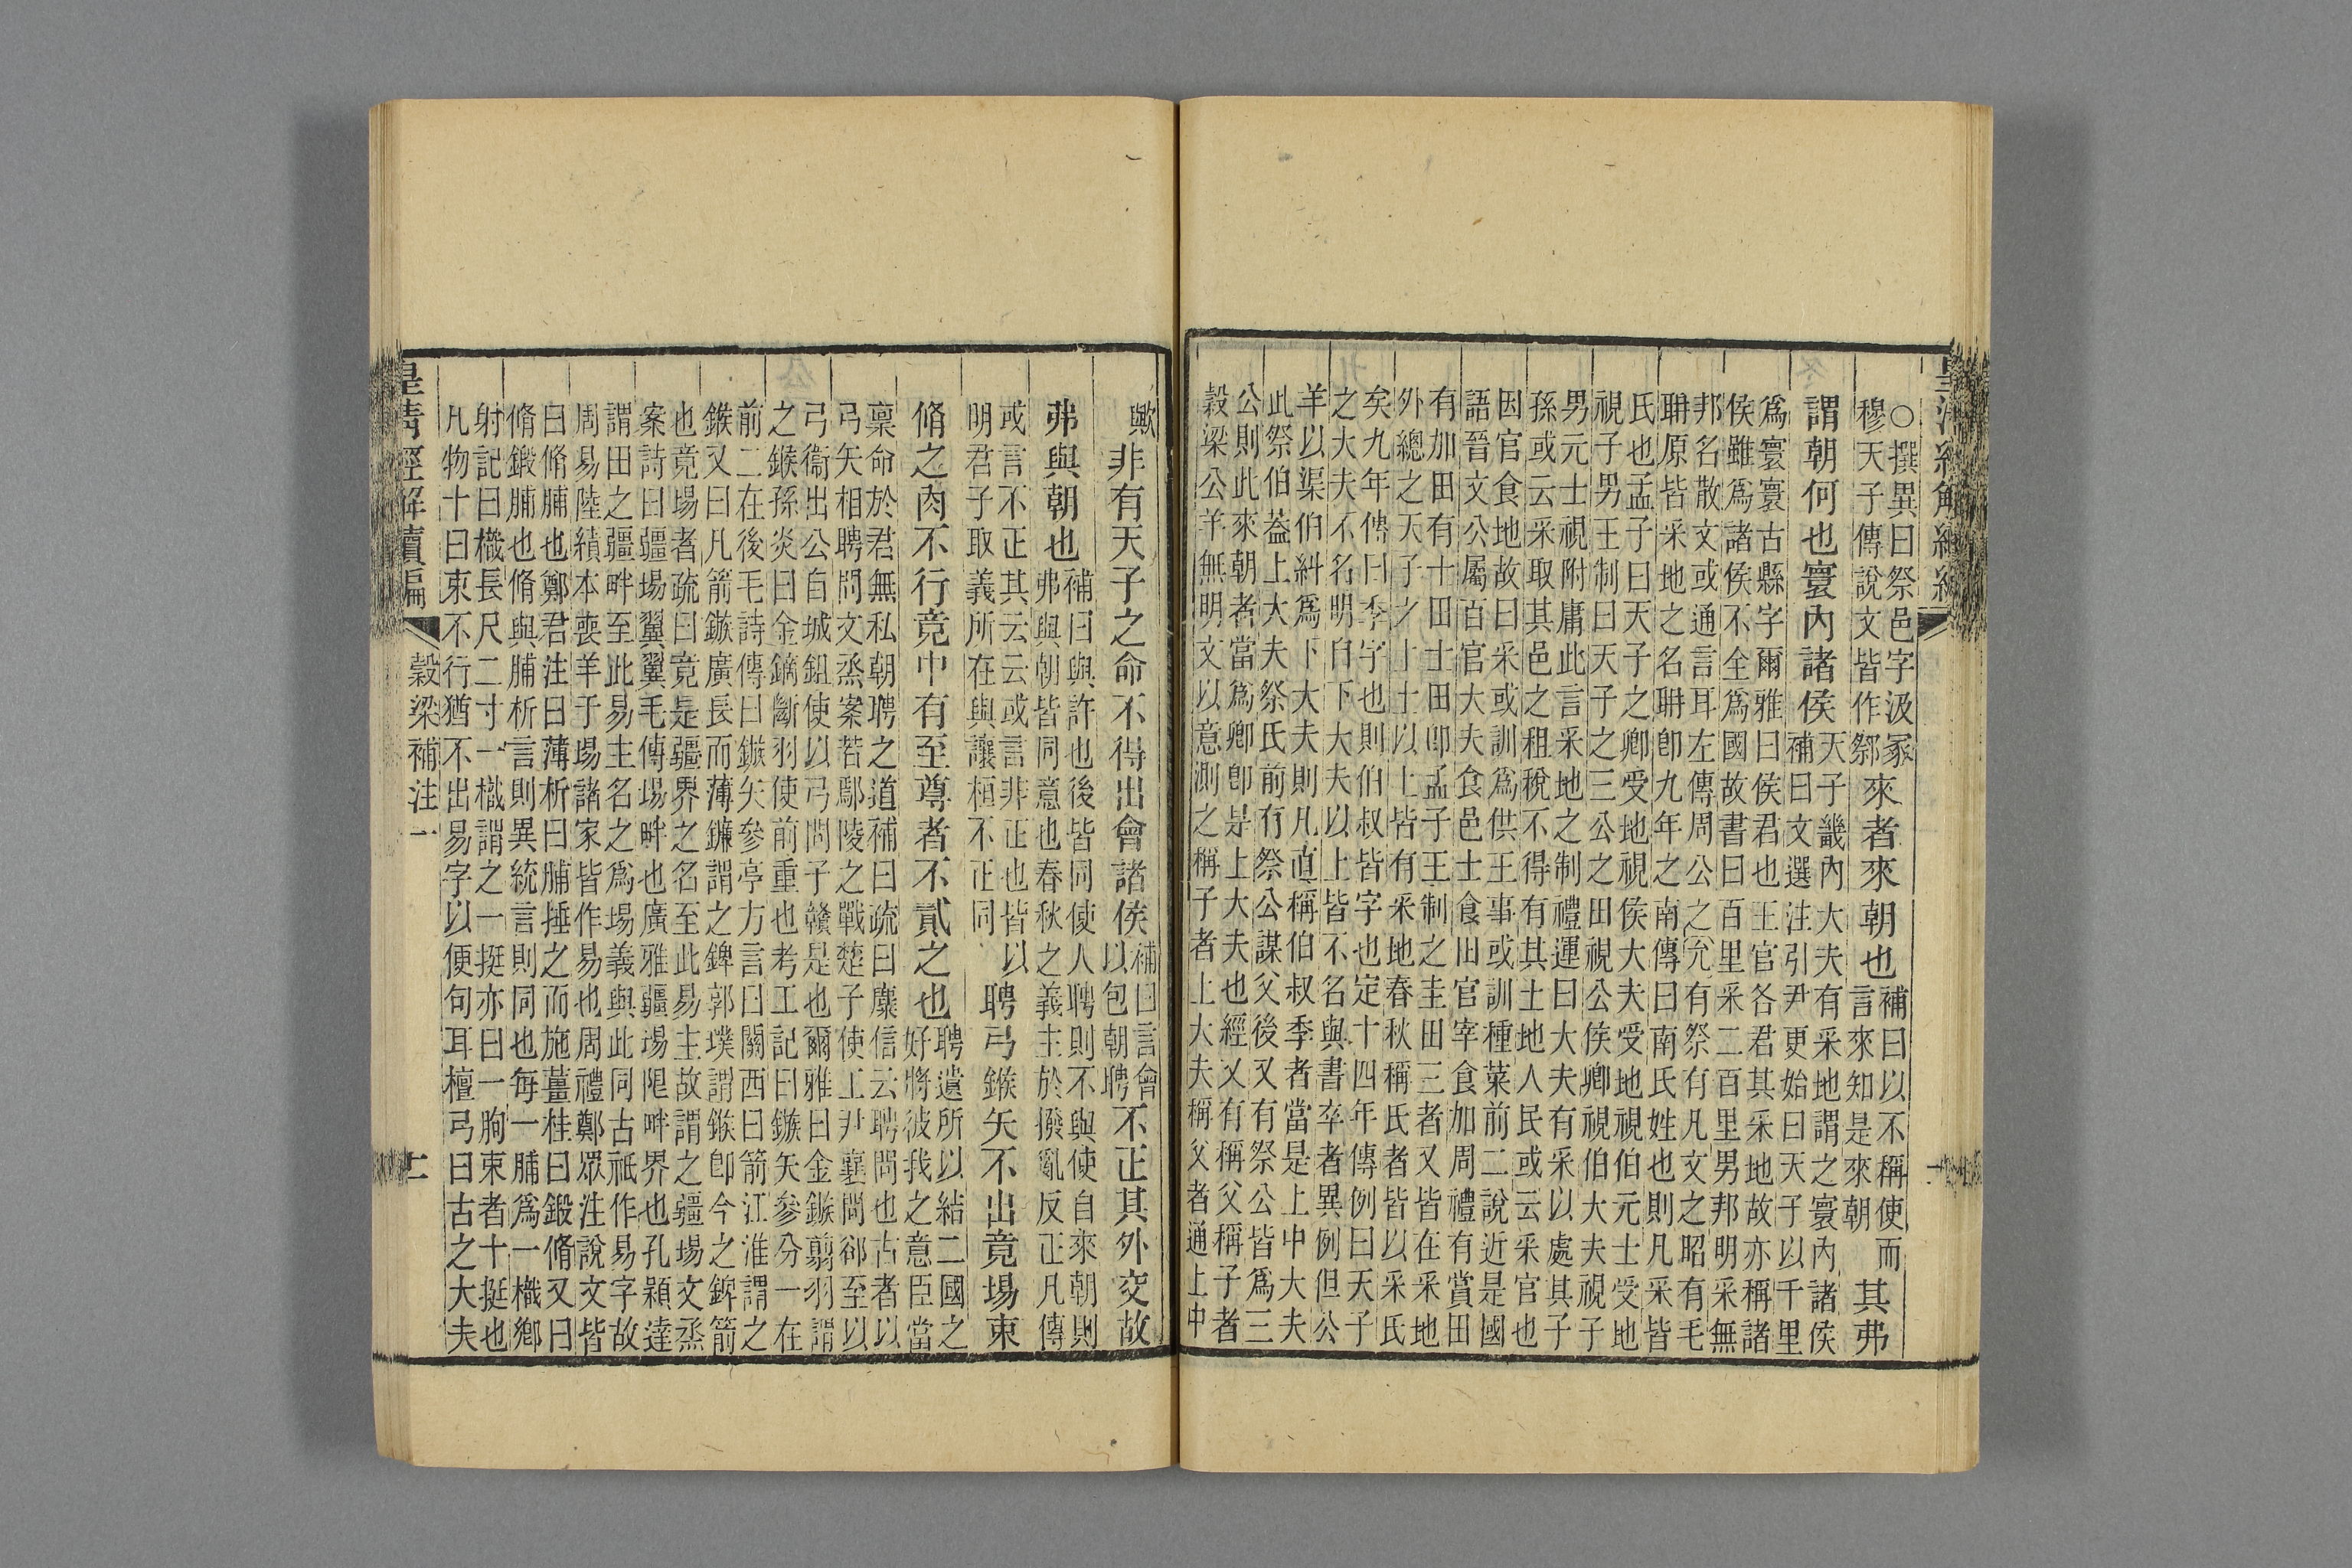 ○撰異曰祭邑字汲冢
穆天子傳說文皆作䣝
來者來朝也
補曰以不稱使而
言來知是來朝
其弗
謂朝何也寰內諸侯
天子畿內大夫有采地謂之寰內諸侯
補曰文選注引尹更始曰天子以千里
爲寰寰古縣字爾雅曰侯君也王官各君其采地故亦稱諸
侯雖爲諸侯不全爲國故書曰百里采二百里男邦明采無
邦名散文或通言耳左傳周公之有祭有凡文之昭有毛
聃原皆采地之名聃卽九年之南傳曰南氏姓也則凡采皆
氏也孟子曰天子之卿受地視侯大夫受地視伯元士受地
視子男王制曰天子之三公之田視公侯卿視伯大夫視子
男元士視附庸此言采地之制禮運曰大夫有采以處其子
孫或云采取其邑之租稅不得有其土地人民或云采官也
因官食地故曰采或訓爲供王事或訓種菜前二說近是國
語晉文公屬百官大夫食邑士食田官宰食加周禮有賞田
有加田有士田士田卽孟子王制之圭田三者又皆在采地
外總之天子之上士以上皆有采地春秋稱氏者皆以采氏
矣九年傳曰季字也則伯叔皆字也定十四年傳例曰天子
之大夫不名明自下大夫以上皆不名與書卒者異例但公
羊以渠伯糾爲下大夫則凡直稱伯叔季者當是上中大夫
此祭伯葢上大夫祭氏前有祭公謀父後又有祭公皆爲三
公則此來朝者當爲卿卽是上大夫也經又有稱父稱子者
穀梁公羊無明文以意測之稱子者上大夫稱父者通上中
歟
非有天子之命不得出會諸侯
補曰言會
以包朝聘
不正其外交故
弗與朝也
補曰與許也後皆同使人聘則不與使自來朝則
弗與朝皆同意也春秋之義主於撥亂反正凡傳
或言不正其云云或言非正也皆以
明君子取義所在與讓桓不正同
聘弓鍭矢不出竟場束
脩之肉不行竟中有至尊者不貳之也
聘遺所以結二國之
好將彼我之意臣當
稟命於君無私朝聘之道補曰疏曰麋信云聘問也古者以
弓矢相聘問文烝案若鄢陵之戰楚子使工尹襄問郤至以
弓衞出公自城鉏使以弓問子贛是也爾雅曰金鏃翦羽謂
之鍭孫炎曰金鏑斷羽使前重也考工記曰鍭矢參分一在
前二在後毛詩傳曰鍭矢參亭方言曰關西曰箭江淮謂之
鍭又曰凡箭鏃廣長而薄鐮謂之錍郭璞謂鍭卽今之錍箭
也竟場者疏曰竟是疆界之名至此易主故謂之疆場文烝
案詩曰疆場翼翼毛傳場畔也廣雅疆場限畔界也孔穎達
謂田之疆畔至此易主名之爲場義與此同古祇作易字故
周易陸績本喪羊于場諸家皆作易也周禮鄭眾注說文皆
曰脩脯也鄭君注曰薄析曰脯捶之而施薑桂曰鍛脩又曰
脩鍛脯也脩與脯析言則異統言則同也每一脯爲一樴鄕
射記曰樴長尺二寸一樴謂之一挺亦曰一朐束者十挺也
凡物十曰束不行猶不出易字以便句耳檀弓曰古之大夫
皇清經解續編
穀梁補注一
二